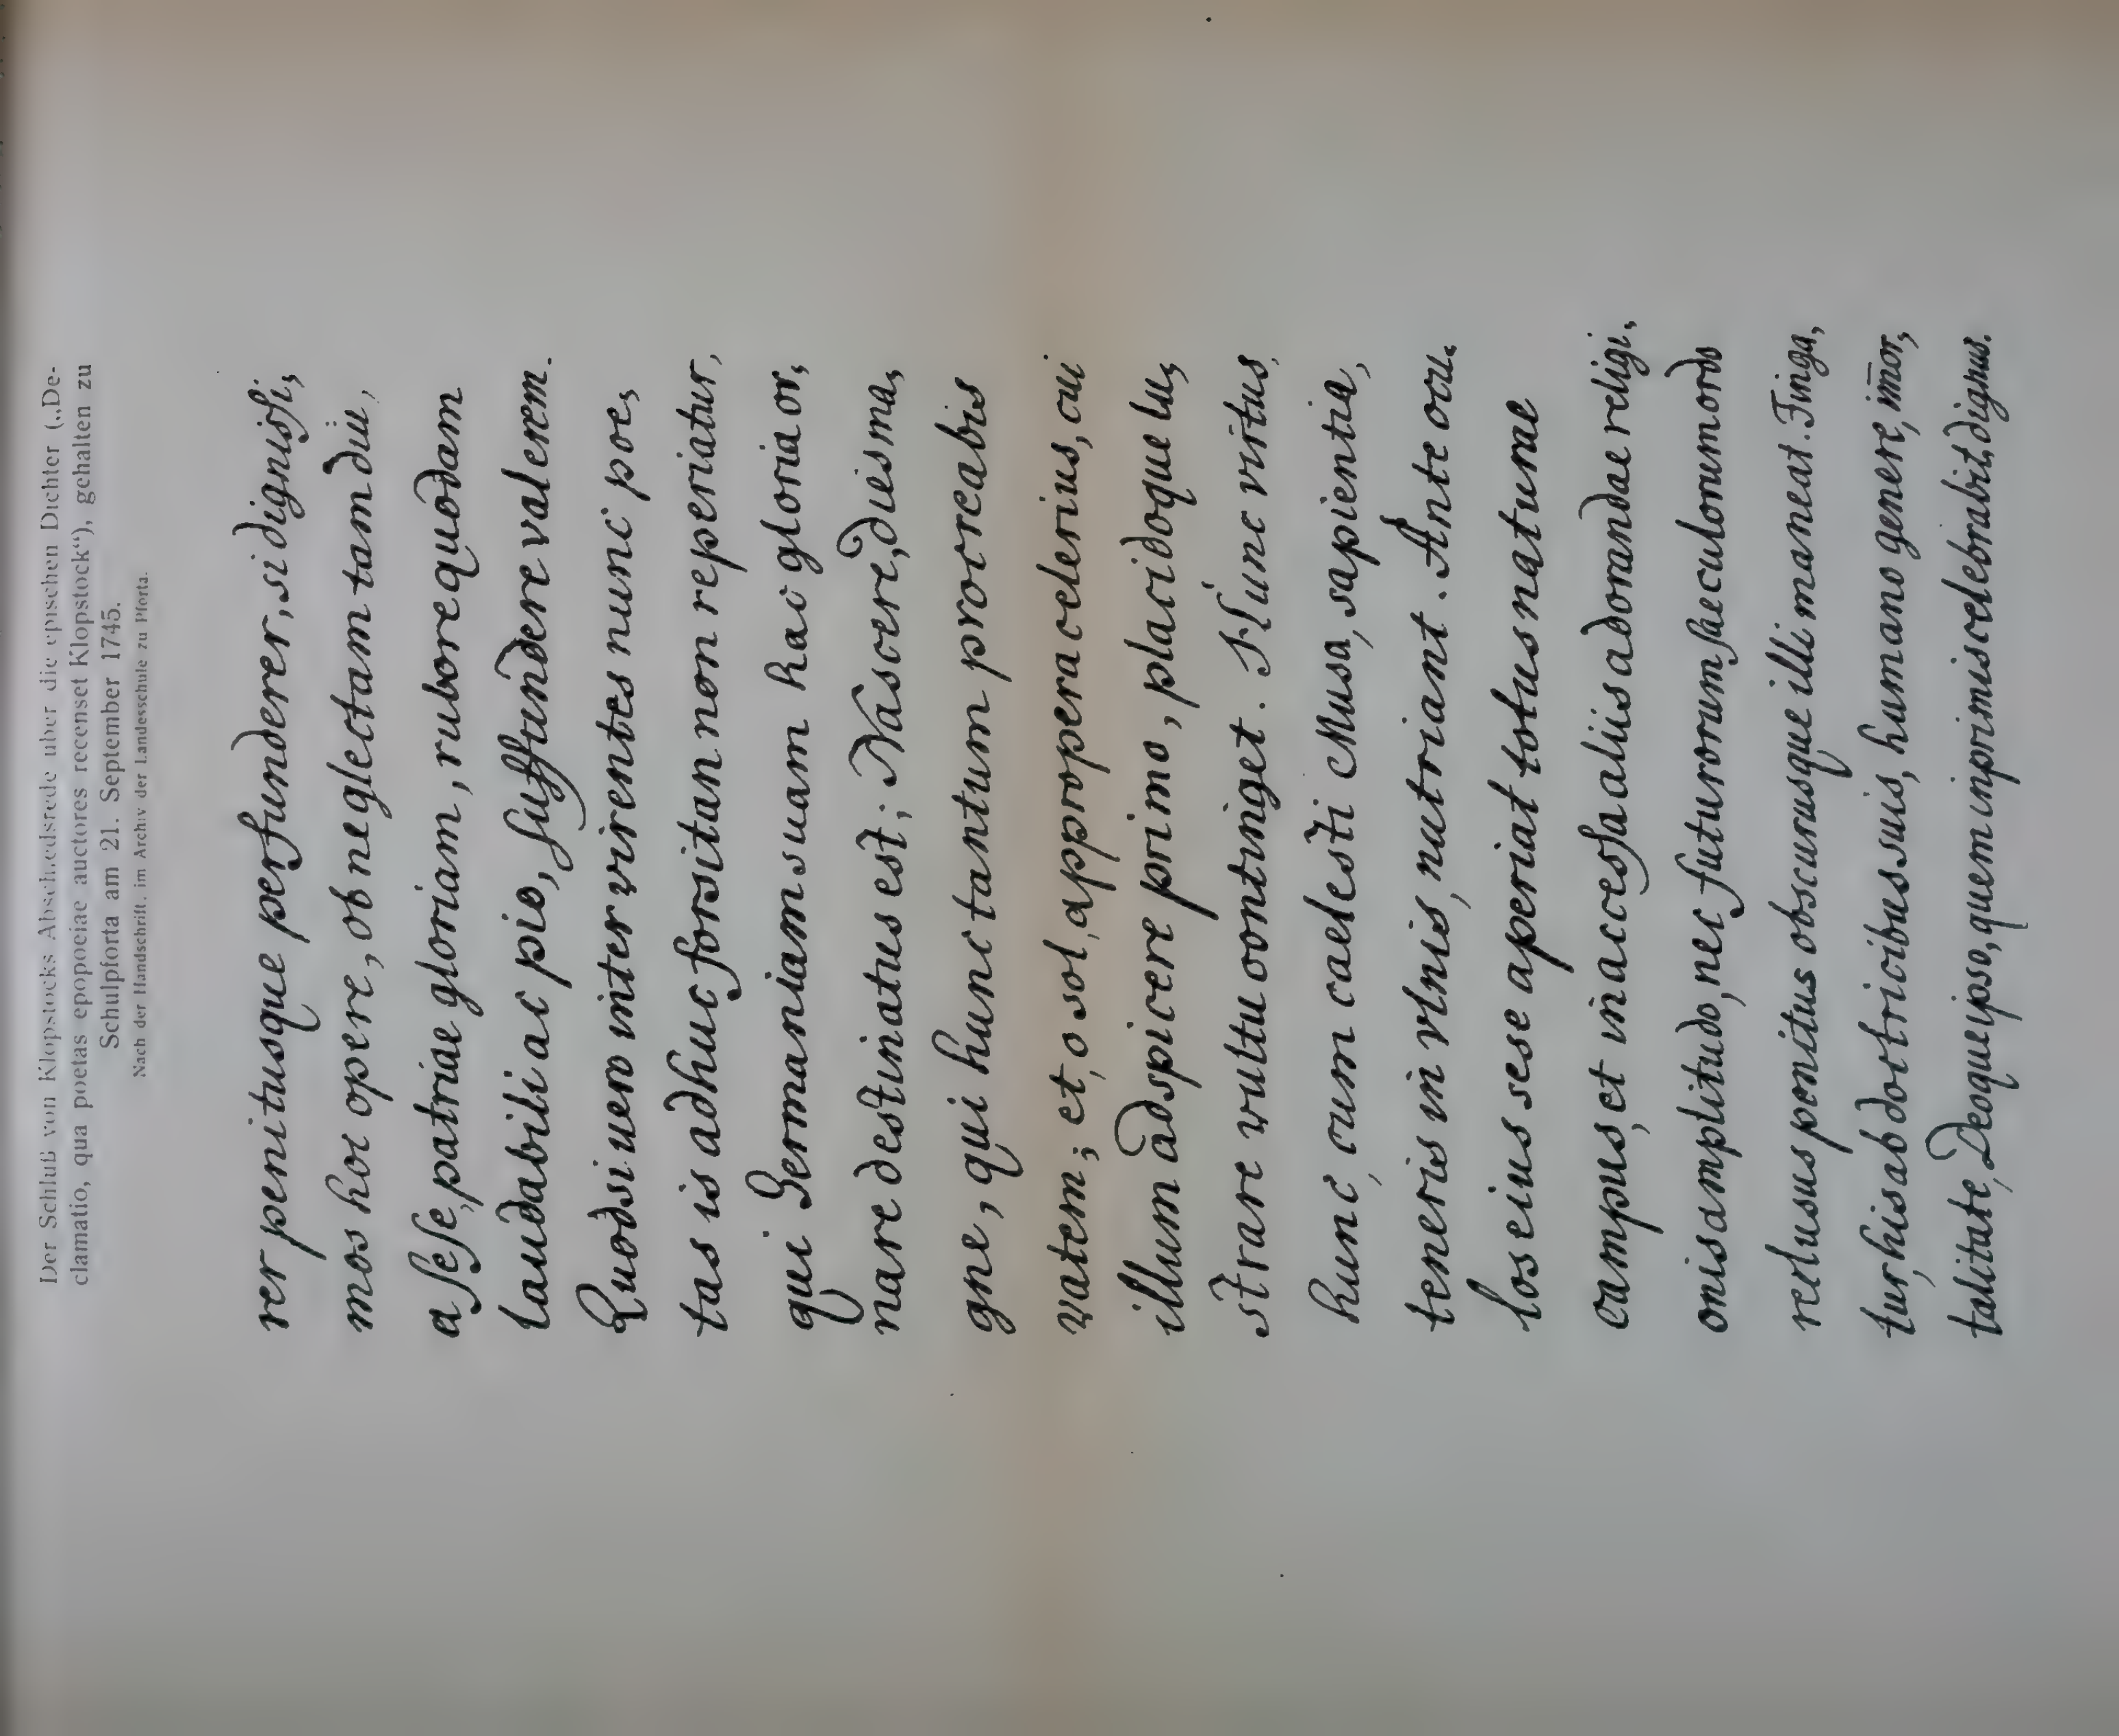 Der Schluß von Klopstocks Abschiedsrede über die epischen Dichter („De-
clamatio, qua poetas epopoeiae auctores recenset Klopstock“), gehalten zu
Schulpforta am 21. September 1745.
Nach der Handschrift, im Archiv der Landesschule zu Pforta.
rer penitusque perfunderer, si dignissi,
mos hoc opere, ob neglectam tam diu,
a sese, patriae gloriam, rubore quodam
laudabili ac pio, suffundere valerem.
Quodsi uero inter virentes nunc poe,
tas is adhuc forsitan non reperiatur,
qui Germaniam suam hac gloria or,
nare destinatus est; Nascere, dies ma,
gne, qui hunc tantum procreabis
vatem; et, o sol, appropera celerius, cui
illum adspicere primo, placidoque lu,
strare vultu continget. Hunc virtus,
hunc, cum caelesti Musa, sapientia,
teneris in vlnis, nutriant. Ante ocu.
los eius sese aperiat totus naturae
campus, et inaccessa aliis adorandae religi,
onis amplitudo, nec futurorum saeculorum ordo
reclusus penitus obscurusque illi maneat. Finga,
tur, his ab doctricibus suis, humano genere, im̄or,
talitate, Deoque ipso, quem inprimis celebrabit, dignus.